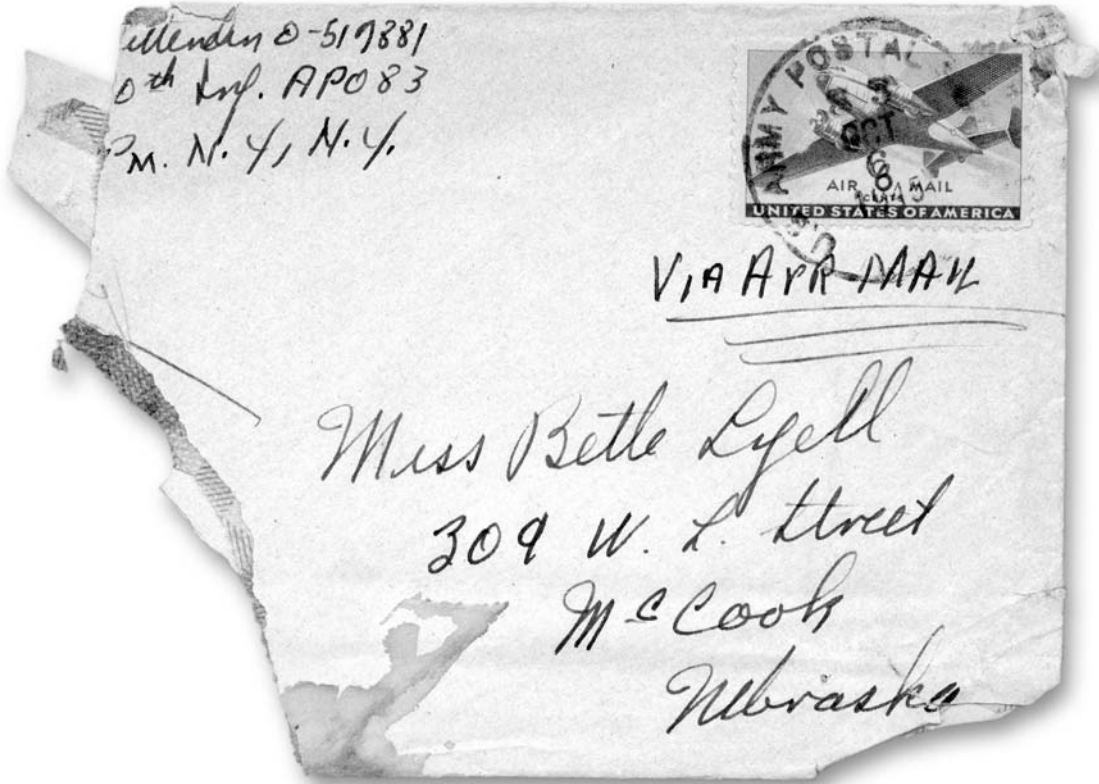 O-519881
0th Inf. APO 83
PM. N.Y., N.Y.
ARMY POSTAL
OCT
6
1945
AIR MAIL
UNITED STATES OF AMERICA
VIA AIR MAIL
Miss Bette Lyell
309 W. L. Street
McCook
Nebraska